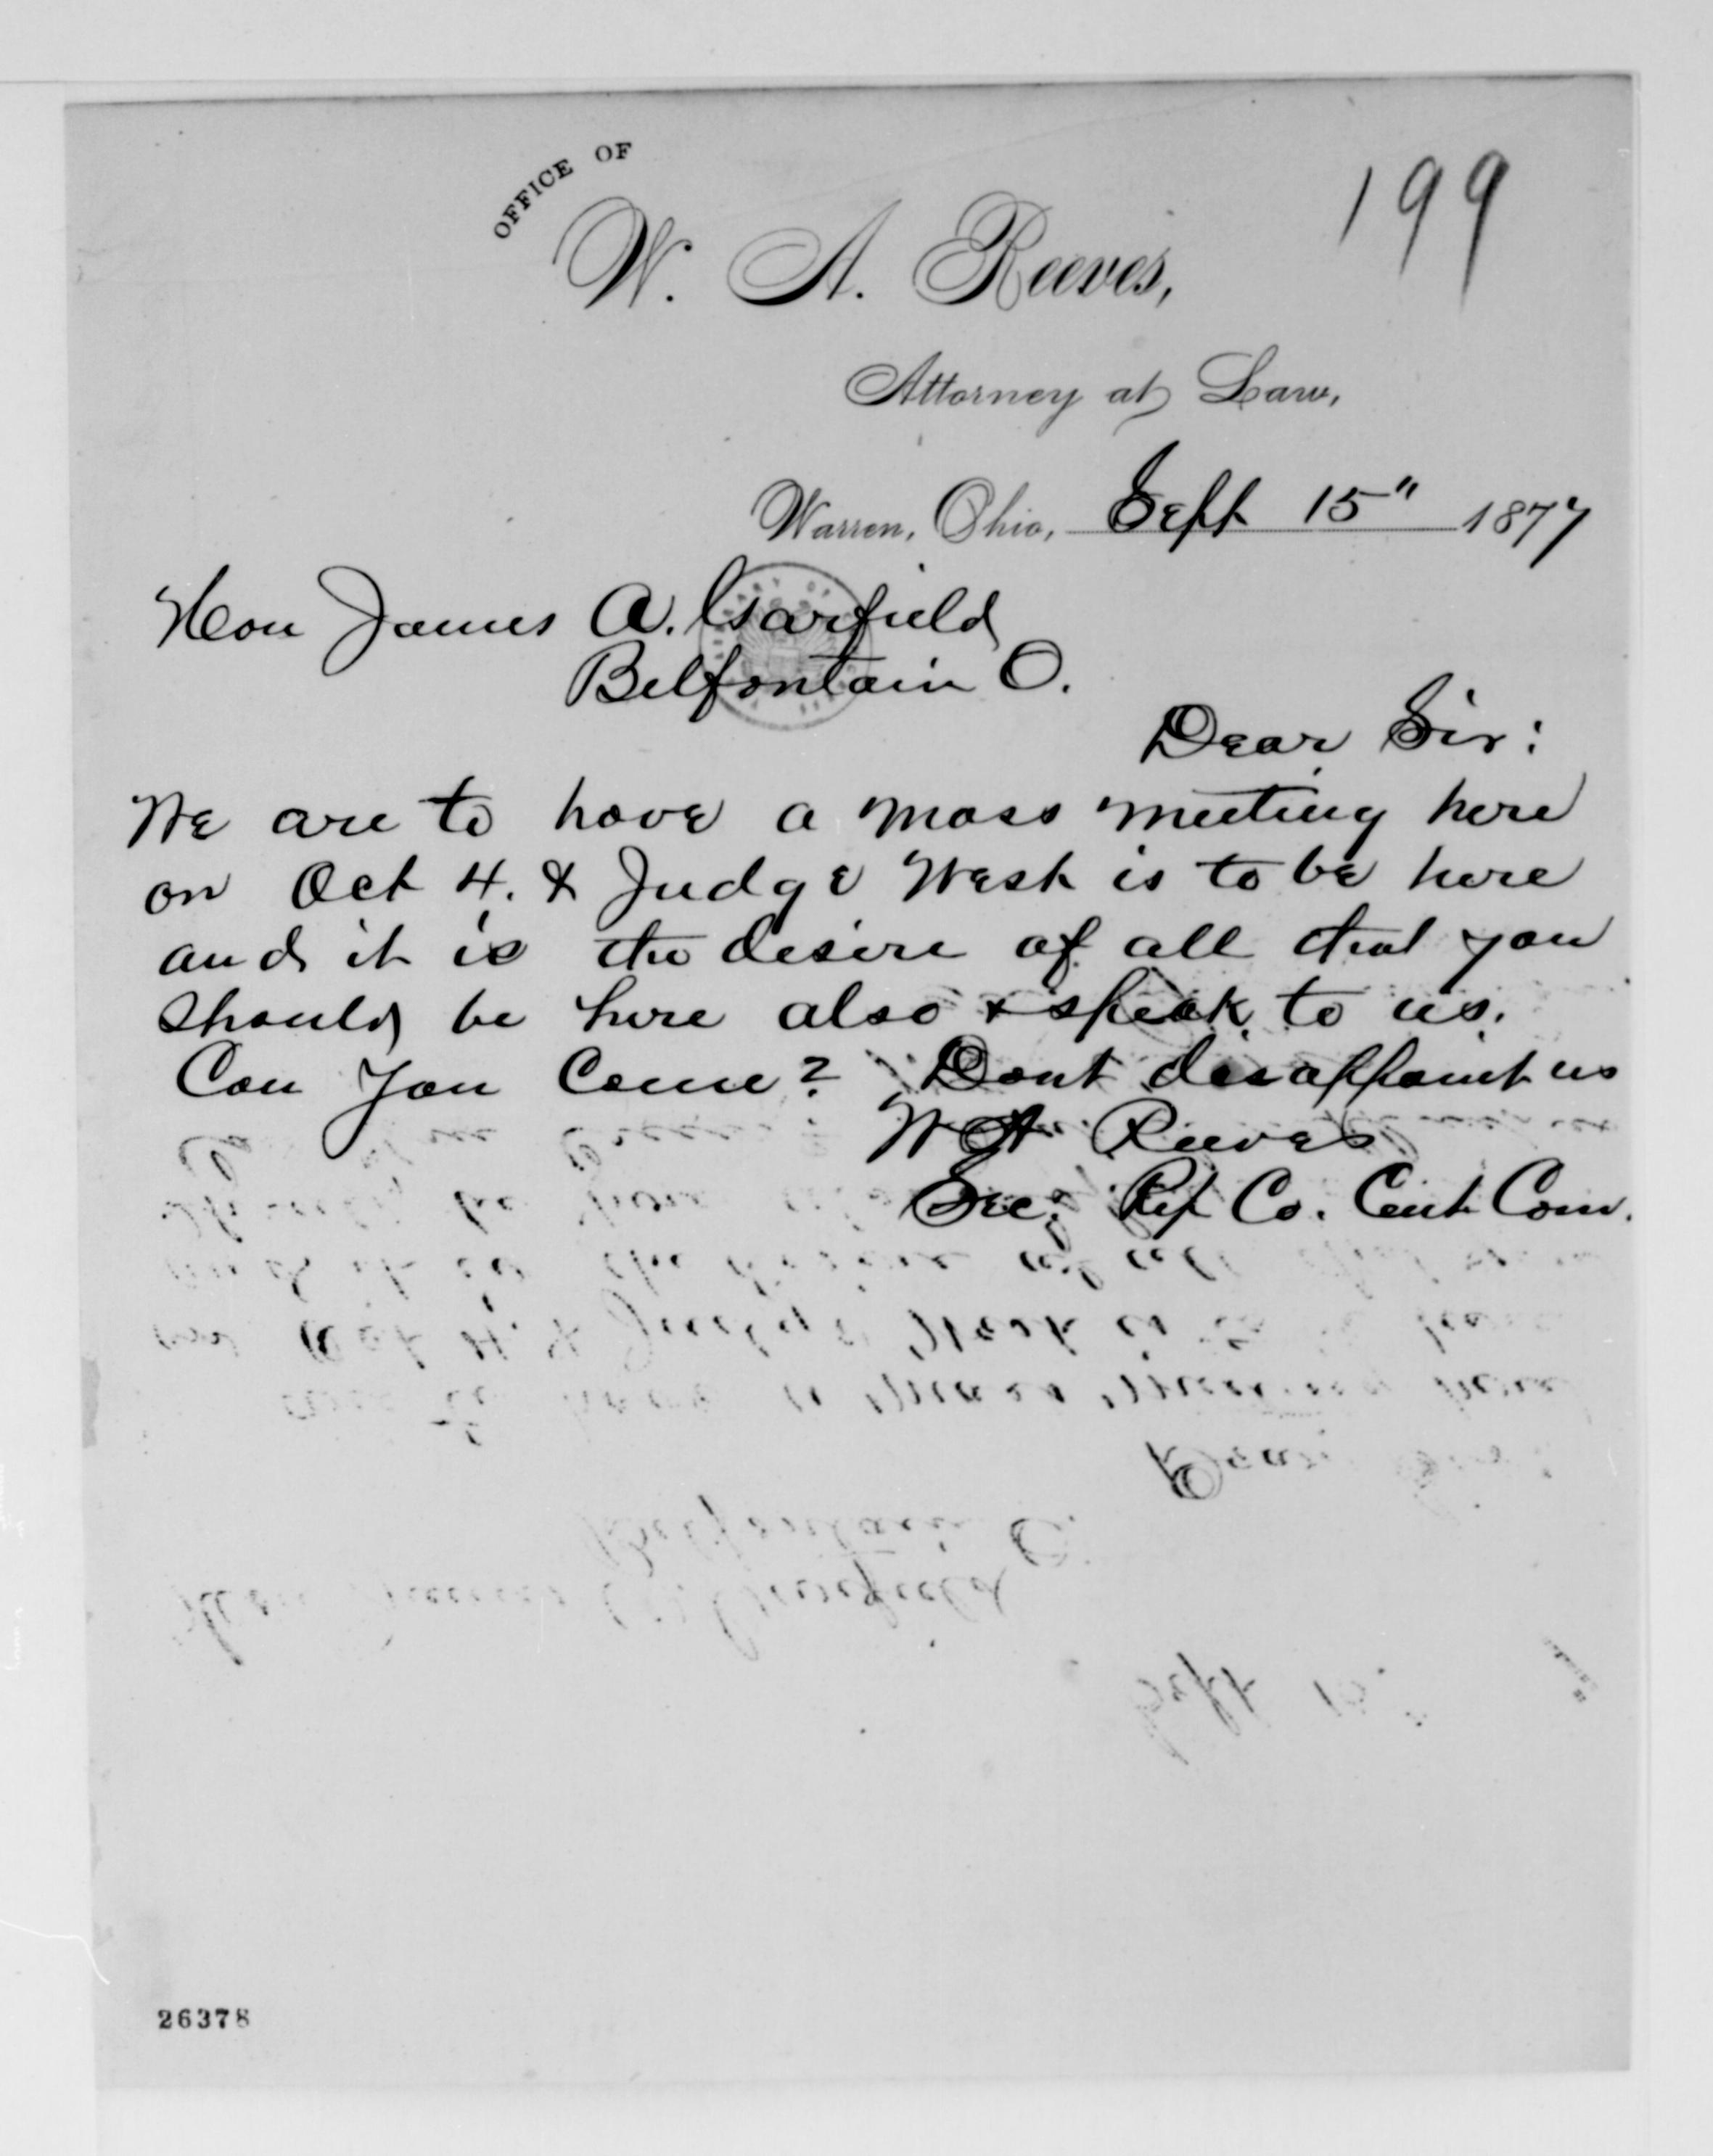 199
OFFICE OF
W. A. Reeves,
Attorney at Law,
Warren, Ohio, Sept 15" 1877
Hon James A. Garfield
Belfontain O.
Dear Sir:
We are to have a mass meeting here
on Oct 4. & Judge West is to be here
and it is the desire of all that you
should be here also & speak to us.
Can you come? Dont disappoint us
W A Reeves
Sec. Rep Co. Cent Com.
26378